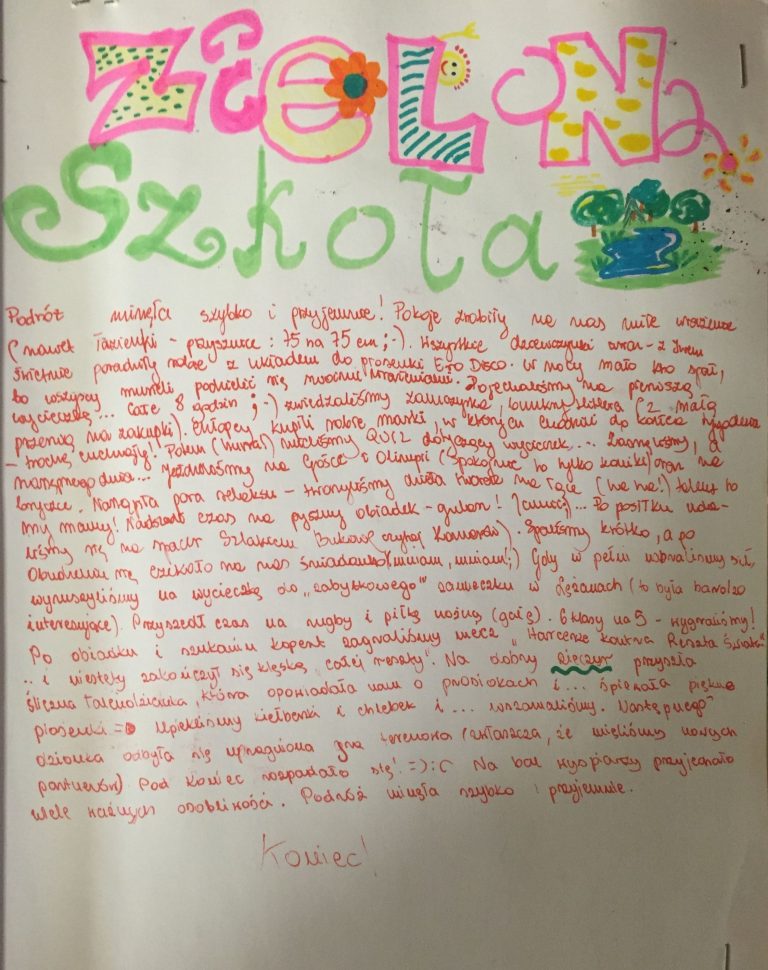 ZieLoNa
Szkoła
Podróż minęła szybko i przyjemnie! Pokoje zrobiły na nas miłe wrażenie
(nawet łazienki - prysznice : 75 na 75 cm ;-). Wszystkie dziewczynki wraz - z
świetnie poradziły sobie z układem do piosenki Ezo Disco. W nocy mało kto spał,
bo wszyscy musieli podzielić się swoimi wrażeniami. Pojechaliśmy na pierwszą
wycieczkę... Całe 8 godzin ;-) zwiedzaliśmy bunkry Hitlera (z małą
przerwą na zakupy). Chłopcy kupili sobie maski, w których chodzili do końca tygodnia
- trochę Potem (hurra!) mieliśmy QUIZ dotyczący wycieczek... Zasnęliśmy, a
następnego dnia... jeździliśmy na Gości i Olimpii (spokojnie, to tylko koniki) oraz na
bryczce. Nastąpiła pora relaksu - na (we na!) to
my mamy! Nadszedł czas na pyszny obiadek - gulasz! ... Po posiłku uda-
liśmy się na spacer Szlakiem Bukowej czytaj komarów). Spaliśmy krótko, a po
Obudzeniu się czekało na nas śniadanko (mniam, mniam!;) Gdy w pełni
wyruszyliśmy na wycieczkę do „zabytkowego" zameczku w Łężanach (to była bardzo
interesujące). Przyszedł czas na rugby i piłkę nożną (gałę). 6 klasy na 5 - wygraliśmy!
Po obiadku i szukaniu kopert zagraliśmy mecz „Harcerze kontra Reszta Świata"
.. i niestety zakończył się klęską „całej reszty". Na dobry wieczór przyszła
śliczna która opowiadała nam o i... śpiewała piękne
piosenki =D Upiekliśmy kiełbaski i chlebek i ... Następnego
dzionka odbyła się gra terenowa (zwłaszcza, że mieliśmy nowych
partnerów). Pod koniec rozpadało się! =) :( Na bal przyjechało
wiele ważnych osobistości. Podróż minęła szybko i przyjemnie.
Koniec!